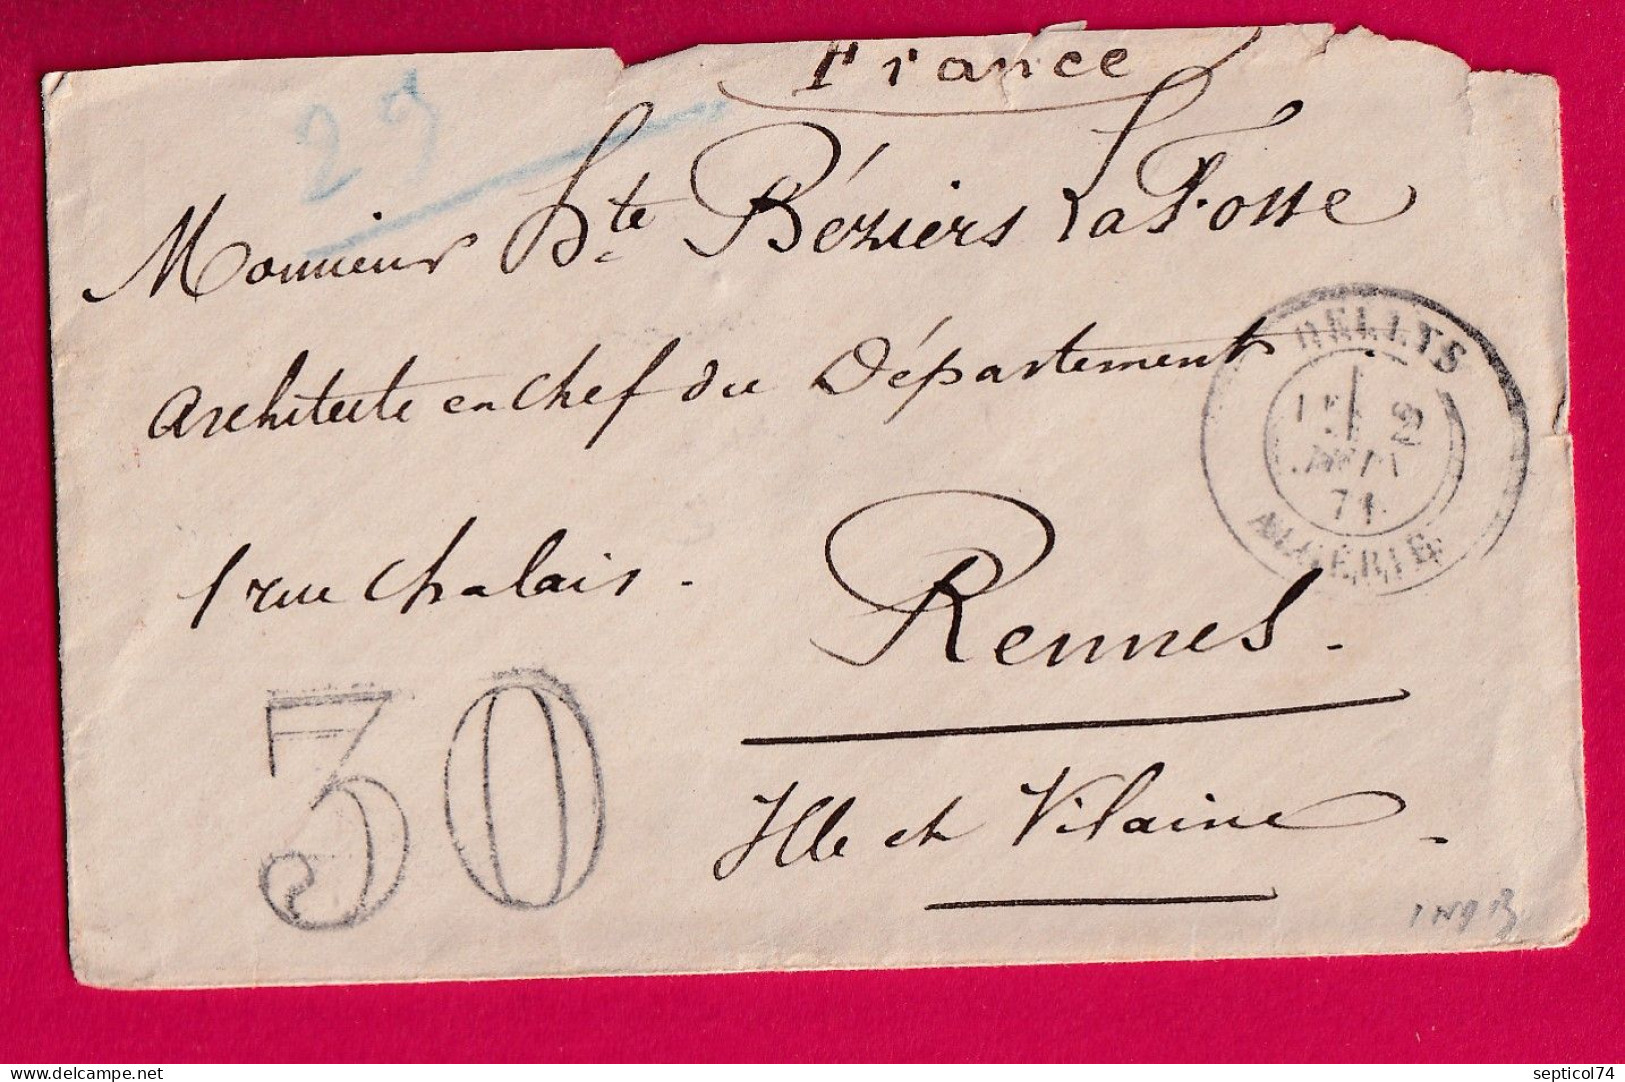 France
29
Monsieur Hte Béziers LaFosse
Architecte en chef du Département
1 rue Chalais.
Rennes.
Ille et Vilaine.
DELLYS
1E 2
71
ALGÉRIE
30
septicol74